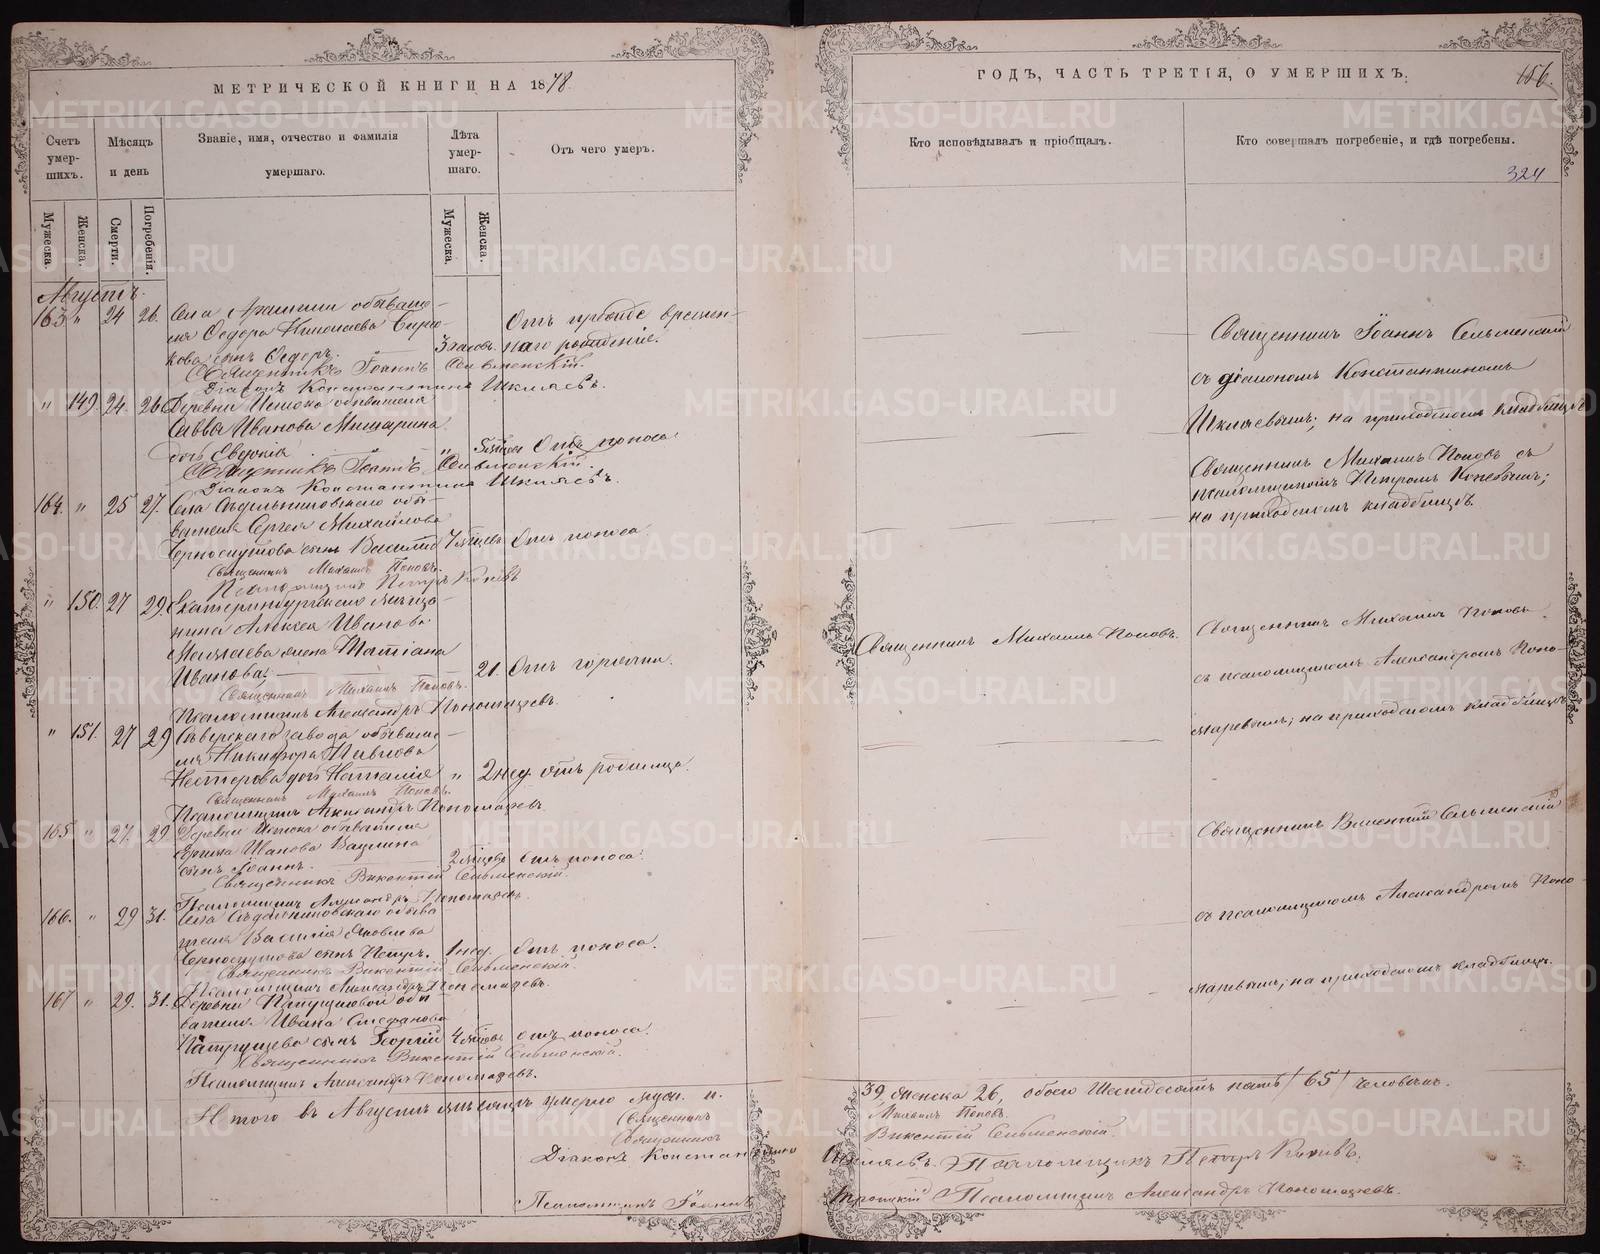 МЕТРИЧЕСКОЙ КНИГИ НА 1878
Счетъ умер-шихъ.
Мѣсяцъ и день
Званіе, имя, отчество и фамилія умершаго.
Лѣта умер-шаго.
Отъ чего умеръ.
Мужеска.
Женска.
Смерти.
Погребенія.
Мужеска.
Женска.
Августъ.
163 " 24 26. Села Арамили обывате-
ля Федора Николаева Бирю-
кова сынъ Федоръ. 3 часовъ.
Отъ преждевремен-
наго рожденія.
Священникъ Іоаннъ Сельменскій.
Діаконъ Константинъ Шкляевъ.
" 149. 24. 26. Деревни Истока обывателя
Саввы Иванова Мишарина
дочь Евдокія " 5 мѣсяц. Отъ поноса
Священникъ Іоаннъ Сельменскій.
Діаконъ Константинъ Шкляевъ.
164. " 25 27. Села Сѣдельниковскаго обы-
вателя Сергея Михайлова
Черноскутова сынъ Василій 7 мѣсяцевъ Отъ поноса
Священникъ Михаилъ Поповъ.
Псаломщикъ Петръ
" 150. 27 29. Екатеринбургскаго мѣща-
нина Алексея Иванова
жена Татіана
Иванова. 21. Отъ горячки.
Священникъ Михаилъ Поповъ.
Псаломщикъ Александръ Пономаревъ.
" 151. 27 29 Сѣверскаго завода обывате-
ля Никифора Павлова
Нестерова дочь Наталія " 2 нед. отъ родимца.
Священникъ Михаилъ Поповъ.
Псаломщикъ Александръ Пономаревъ.
165 " 27. 29 Деревни Истока обывателя
Иванова
сынъ Іоаннъ. 2 мѣсяцевъ отъ поноса.
Священникъ Викентій Сельменскій.
Псаломщикъ Александръ Пономаревъ.
166. " 29 31. Села Сѣдельниковскаго обыва
теля Василія Яковлева
Черноскутова сынъ Петръ. 1 нед. Отъ поноса.
Священникъ Викентій Сельменскій.
Псаломщикъ Александръ Пономаревъ.
167 " 29. 31. Деревни Патрушевой обы
вателя Ивана Стефанова
Патрушева сынъ Георгій 4 мѣсяцовъ отъ поноса.
Священникъ Викентій Сельменскій.
Псаломщикъ Александръ Пономаревъ.
Итого въ Августѣ мѣсяцѣ умерло муж. п.
Священникъ
Священникъ
Діаконъ Константинъ
Псаломщикъ Іоаннъ
ГОДЪ, ЧАСТЬ ТРЕТІЯ, О УМЕРШИХЪ.
186.
Кто исповѣдывалъ и пріобщалъ.
Кто совершалъ погребеніе, и гдѣ погребены.
324
Священникъ Іоаннъ Сельменскій
съ діакономъ Константиномъ
Шкляевымъ; на приходскомъ кладбищѣ
Священникъ Михаилъ Поповъ съ
псаломщикомъ Петромъ
на приходскомъ кладбищѣ.
Священникъ Михаилъ Поповъ.
Священникъ Михаилъ Поповъ
съ псаломщикомъ Александромъ Поно-
маревымъ; на приходскомъ кладбищѣ
Священникъ Викентій Сельменскій
съ псаломщикомъ Александромъ Поно-
маревымъ; на приходскомъ кладбищѣ.
39, женска 26, обоего Шестьдесятъ пять /65/ человѣкъ.
Михаилъ Поповъ.
Викентій Сельменскій.
Шкляевъ. Псаломщикъ Петръ
Троицкій Псаломщикъ Александръ Пономаревъ.
METRIKI.GASO-URAL.RU